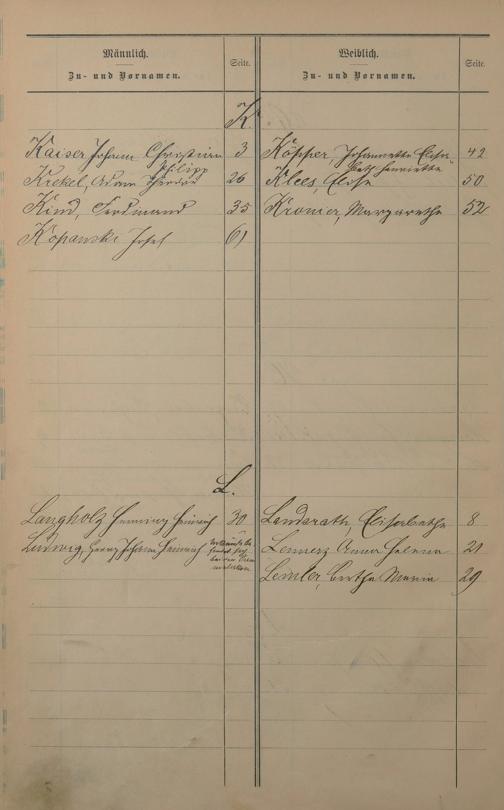 Männlich. Weiblich.
Zu- und Vornamen. Seite. Zu- und Vornamen. Seite.
K.
Kaiser Johann Christian 3 Köpper, Johannette Elisa- 42
Philipp beth Henriette
Krekel, Adam Theodor 26 Klees, Elise 50
Kind, Ferdinand 35 Kromer, Margarethe 52
Kopanski Josef 61
L.
Langholz Henning Heinrich 30 Landsrath, Elisabethe 8
Ludwig, Johann Heinrich Lennerz Anna Helena 21
Lemler, Bertha Maria 29